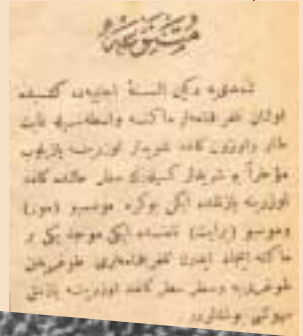 متنوعه
شمدی‌یه دكین السنهٔ اجنبیه‌ده كشیده
اولنان تلغرافنامه‌لر ماكنه واسطه‌سیله ثابت
طار واوزون كاغد شریدلر اوزرینه یازیلوب
مؤخراً بو شریدلر كسیله‌رك سطر حالنده كاغد
اوزرینه یازلمقده ایكن بوكره موسیو (مور)
وموسیو (رایت) نامنده ایكی موجد یكی بر
ماكنه ایجاد ایدرك تلغرافنامه‌لری طوغریدن
طوغری‌یه وسطر سطر كاغد اوزرینه یازمق
سهولتی بولنمشدر.